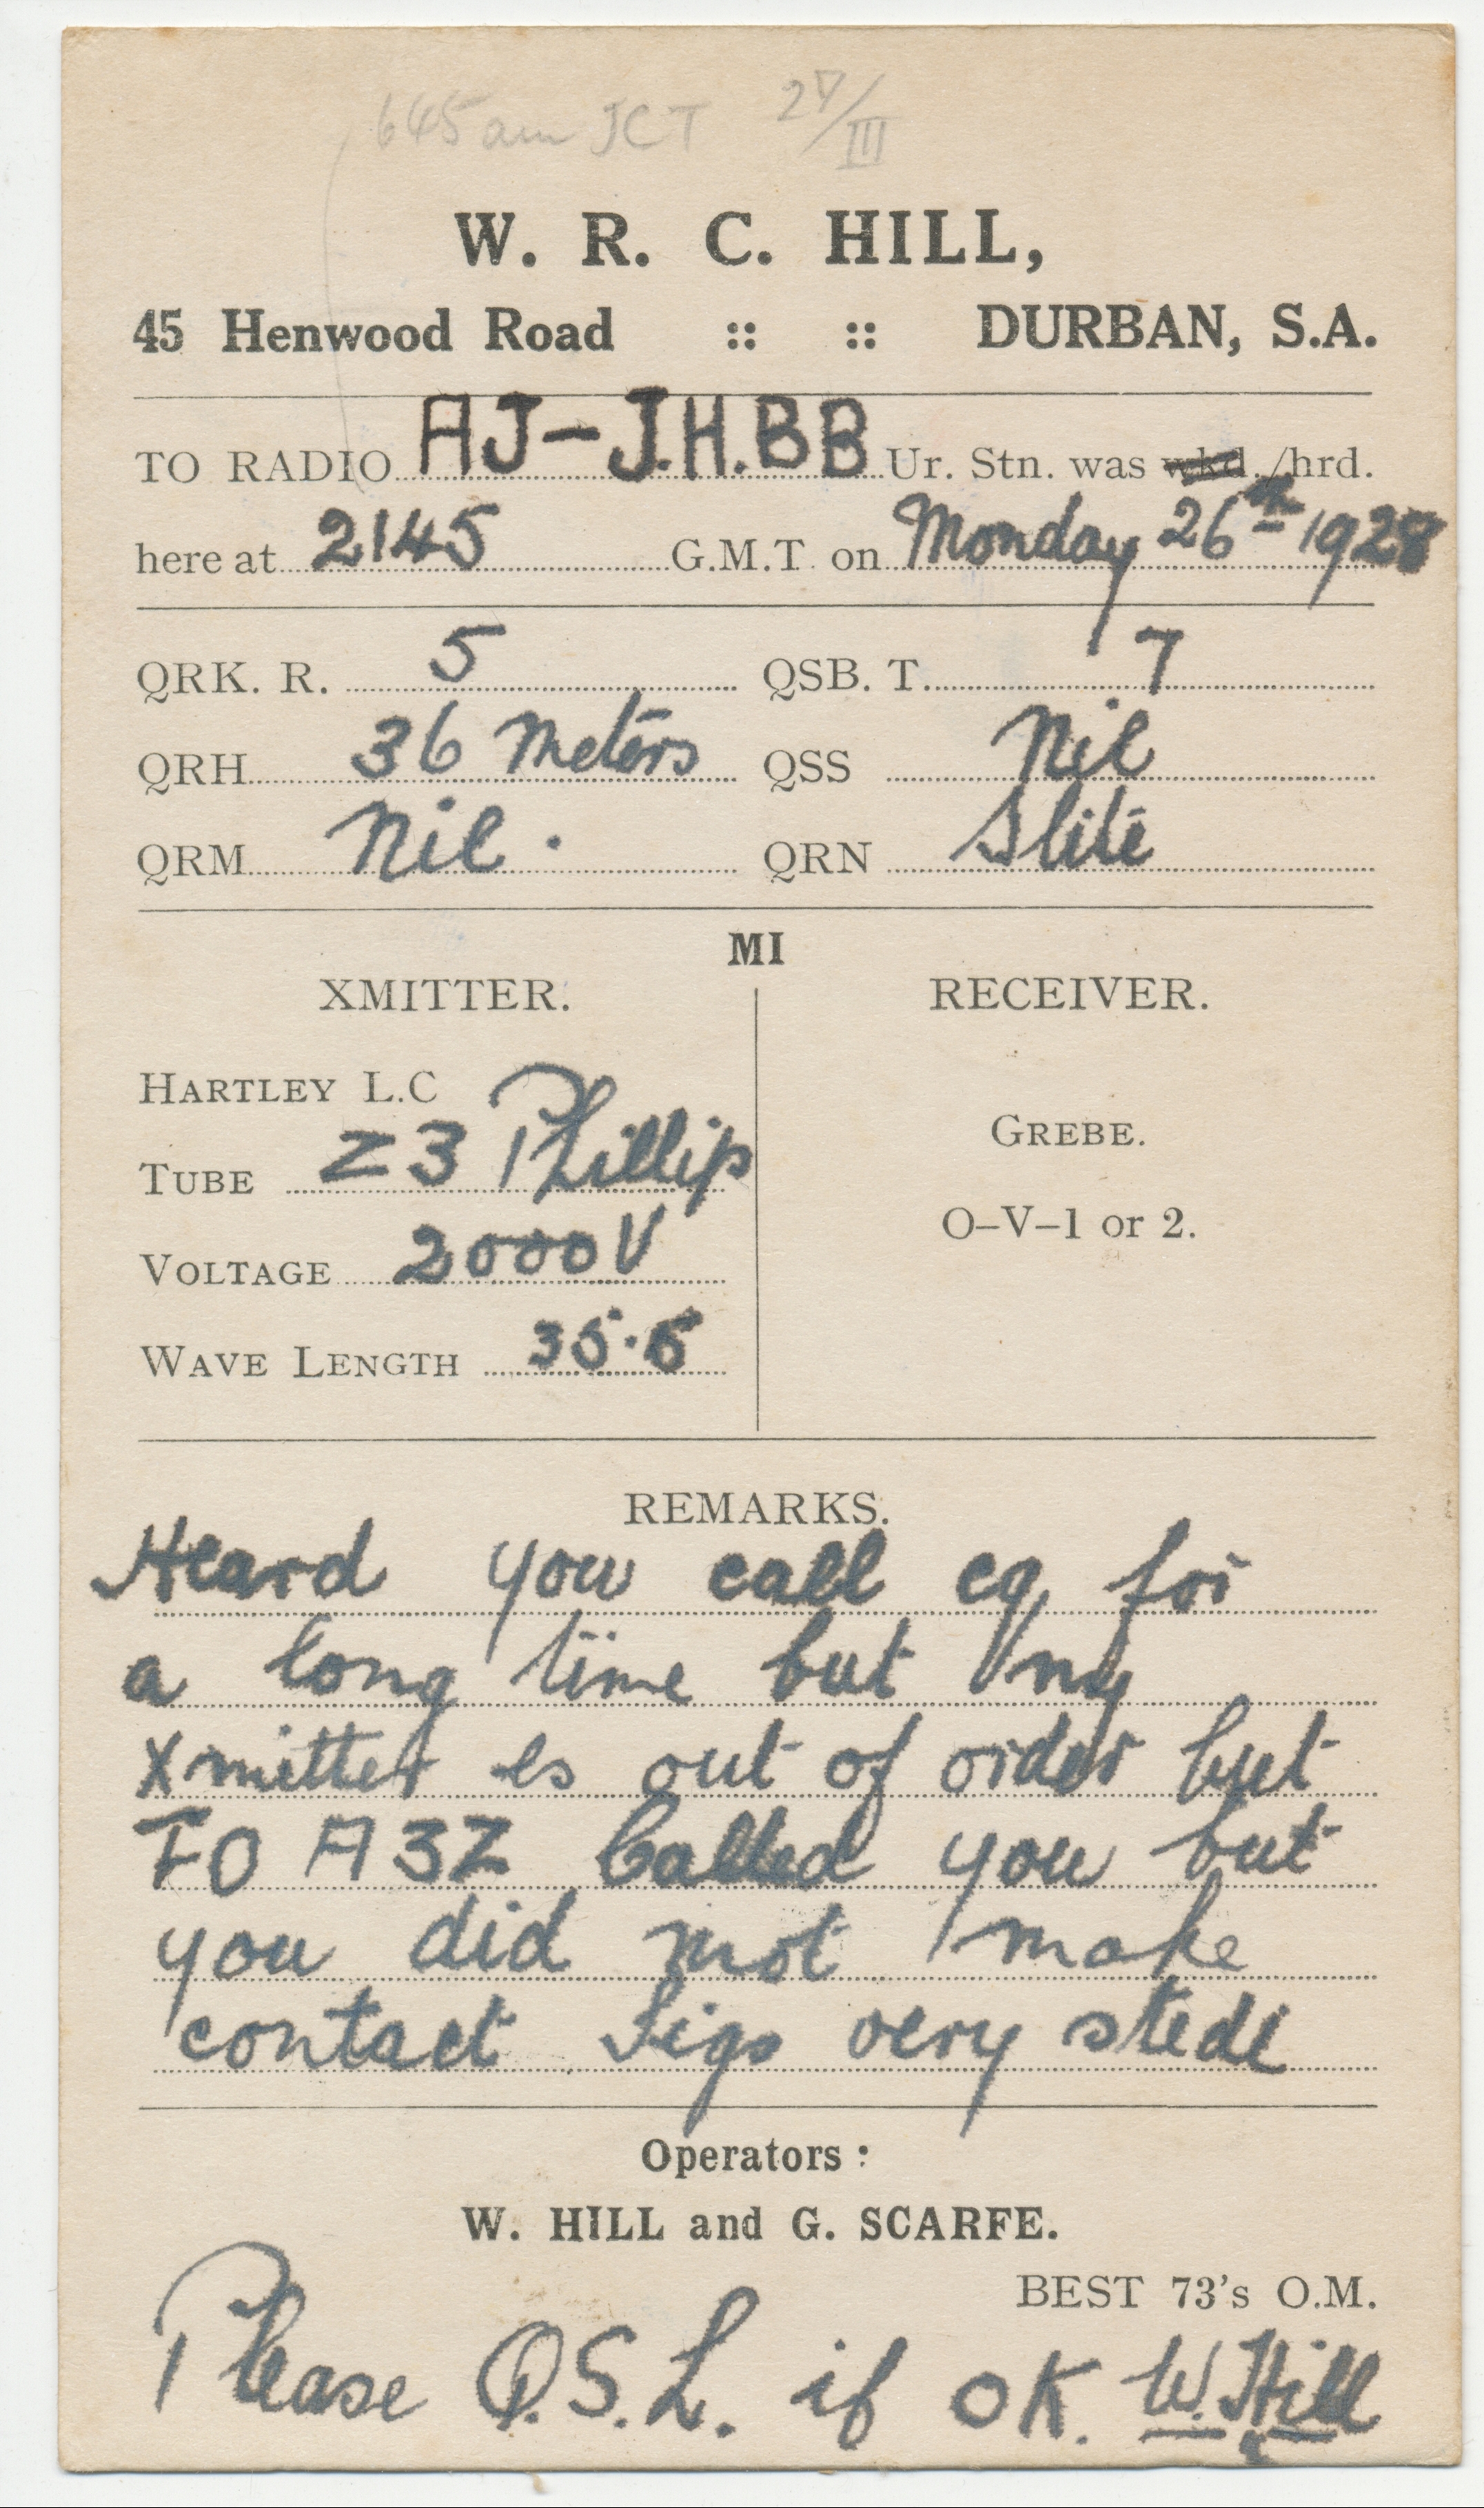 645 am JCT 27/III
W. R. C. HILL,
45 Henwood Road :: :: DURBAN, S.A.
TO RADIO AJ-J.H.BB Ur. Stn. was wkd./hrd.
here at 2145 G.M.T. on Monday 26th 1928
QRK. R. 5 QSB. T. 7
QRH 36 Meters QSS Nil
QRM Nil. QRN Slite
MI
XMITTER. RECEIVER.
HARTLEY L.C
GREBE.
TUBE Z3 Phillip
O-V-1 or 2.
VOLTAGE 2000V
WAVE LENGTH 35.5
REMARKS.
Heard you call cq for
a long time but my
xmitter is out of order but
FO A3Z Called you but
you did not make
contact Sigs very stedi
Operators :
W. HILL and G. SCARFE.
BEST 73's O.M.
Please Q.S.L. if OK. W. Hill